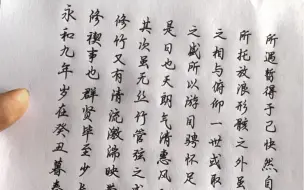 永和九年岁在癸丑暮春
修禊事也群贤毕至少长
修竹又有清流激湍映
其次虽无丝竹管弦之
是日也天朗气清惠风
之盛所以游目骋怀足
之相与俯仰一世或取
所托放浪形骸之外虽
所遇暂得于己快然自